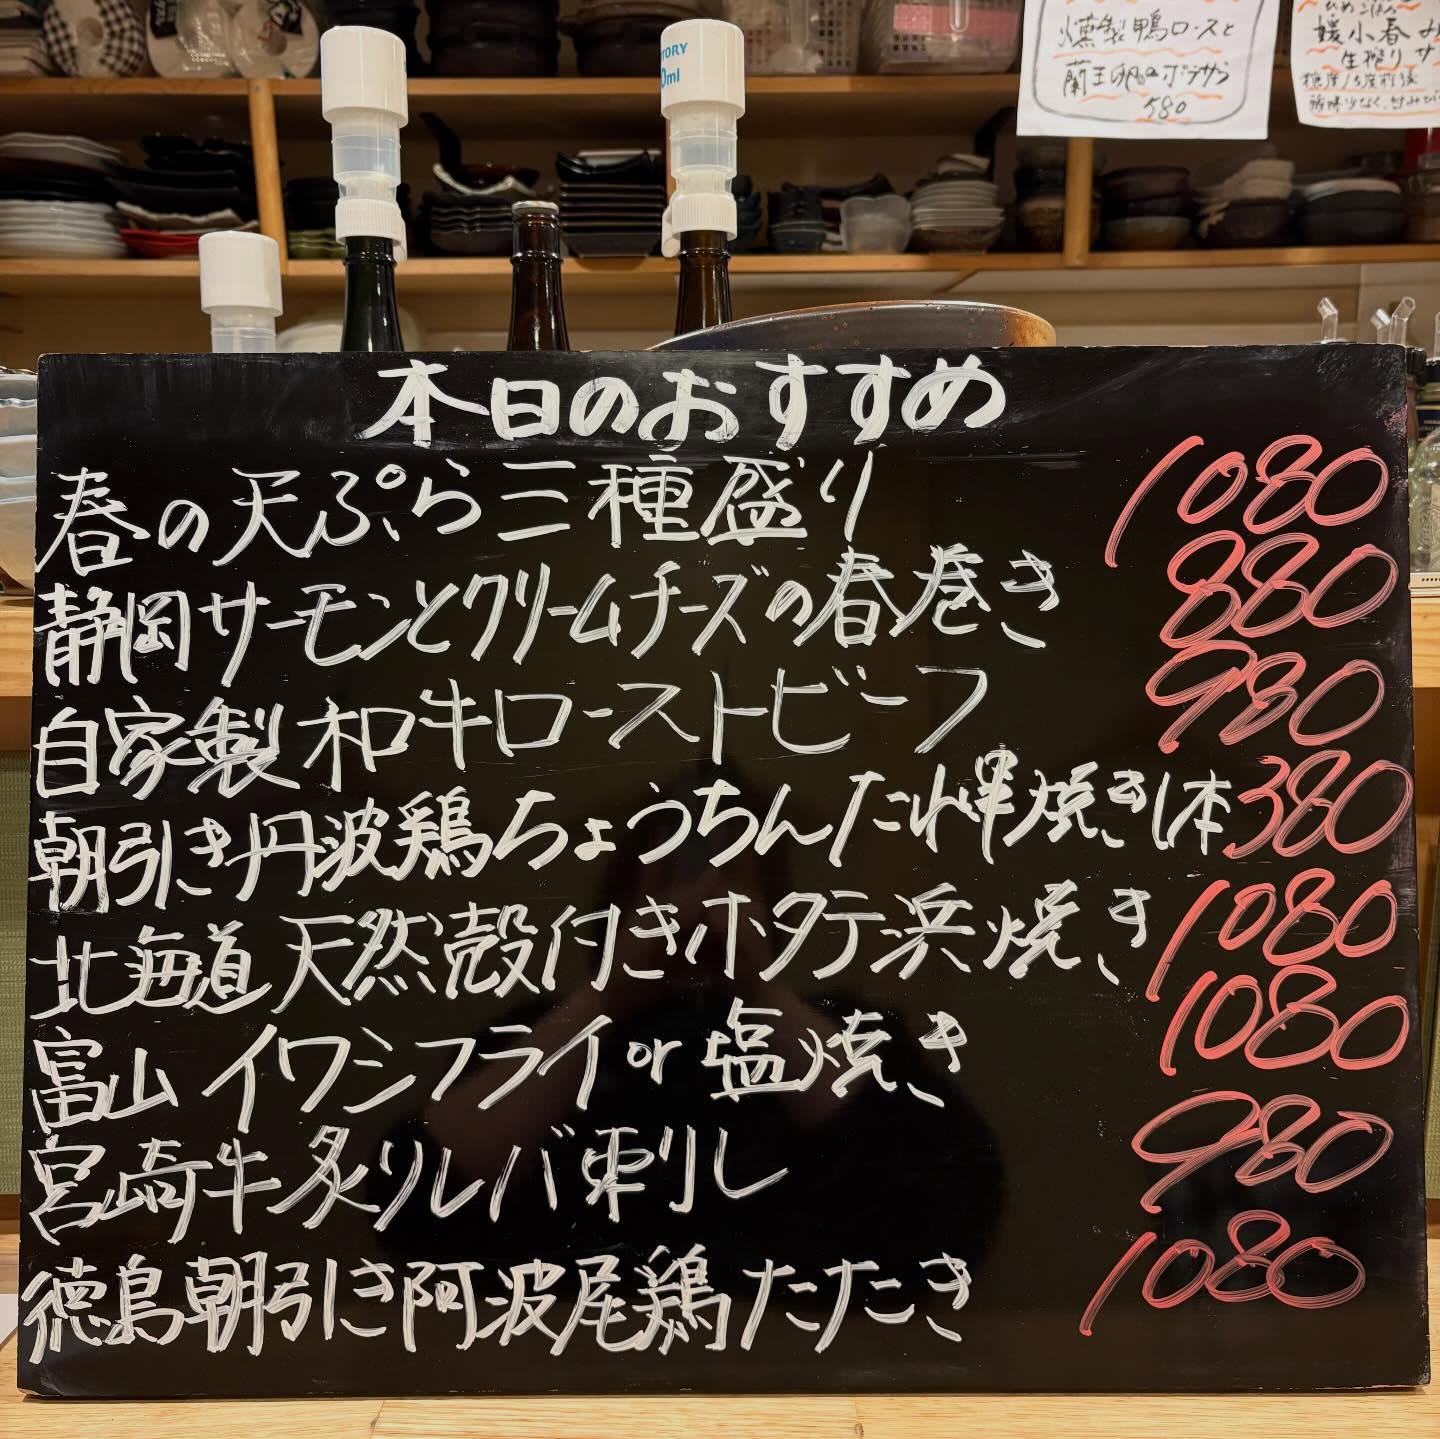 燻製鴨ロースと
蘭王卵のポテサラ
580
媛小春
生搾りサ
TORY
0ml
本日のおすすめ
春の天ぷら三種盛り 1080
静岡サーモンとクリームチーズの春巻き 880
自家製和牛ローストビーフ 980
朝引き丹波鶏ちょうちんたれ串焼き1本 380
北海道天然殻付きホタテ浜焼き 1080
富山イワシフライor塩焼き 1080
宮崎牛炙りレバ刺し 980
徳島朝引き阿波尾鶏たたき 1080